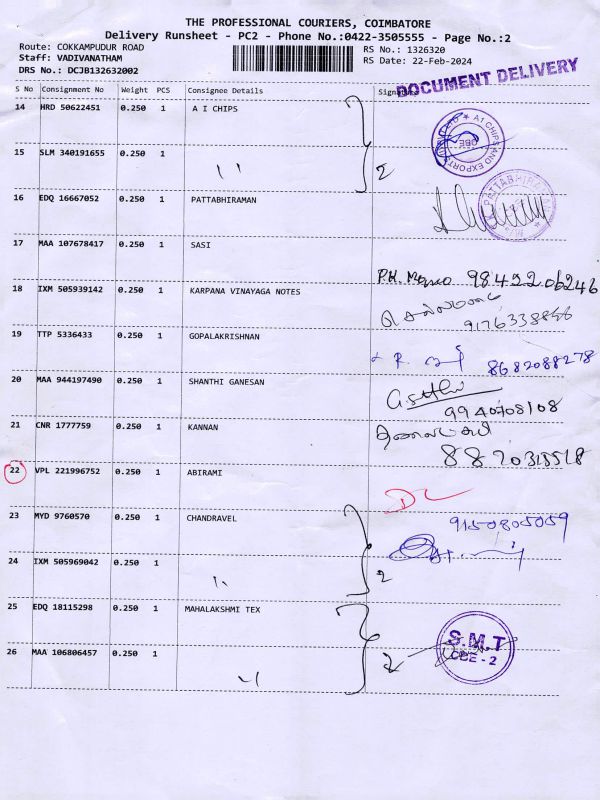 THE PROFESSIONAL COURIERS, COIMBATORE
Delivery Runsheet - PC2 - Phone No.:0422-3505555 - Page No.:2
Route: COKKAMPUDUR ROAD
RS No.: 1326320
Staff: VADIVANATHAM
RS Date: 22-Feb-2024
DRS No.: DCJB132632002
DOCUMENT DELIVERY
S No Consignment No Weight PCS Consignee Details Signature
14 HRD 50622451 0.250 1 A I CHIPS
A1 CHIPS AND EXPORTS
CBE
15 SLM 340191655 0.250 1 " 2
16 EDQ 16667052 0.250 1 PATTABHIRAMAN
17 MAA 107678417 0.250 1 SASI
98422 06246
18 IXM 505939142 0.250 1 KARPANA VINAYAGA NOTES
9176338866
19 TTP 5336433 0.250 1 GOPALAKRISHNAN
8682088278
20 MAA 944197490 0.250 1 SHANTHI GANESAN
9940708108
21 CNR 1777759 0.250 1 KANNAN
8870315518
22 VPL 221996752 0.250 1 ABIRAMI
DL
23 MYD 9760570 0.250 1 CHANDRAVEL
9150805059
24 IXM 505969042 0.250 1 " 2
25 EDQ 18115298 0.250 1 MAHALAKSHMI TEX
S.M.T
CBE - 2
26 MAA 106806457 0.250 1 " 2